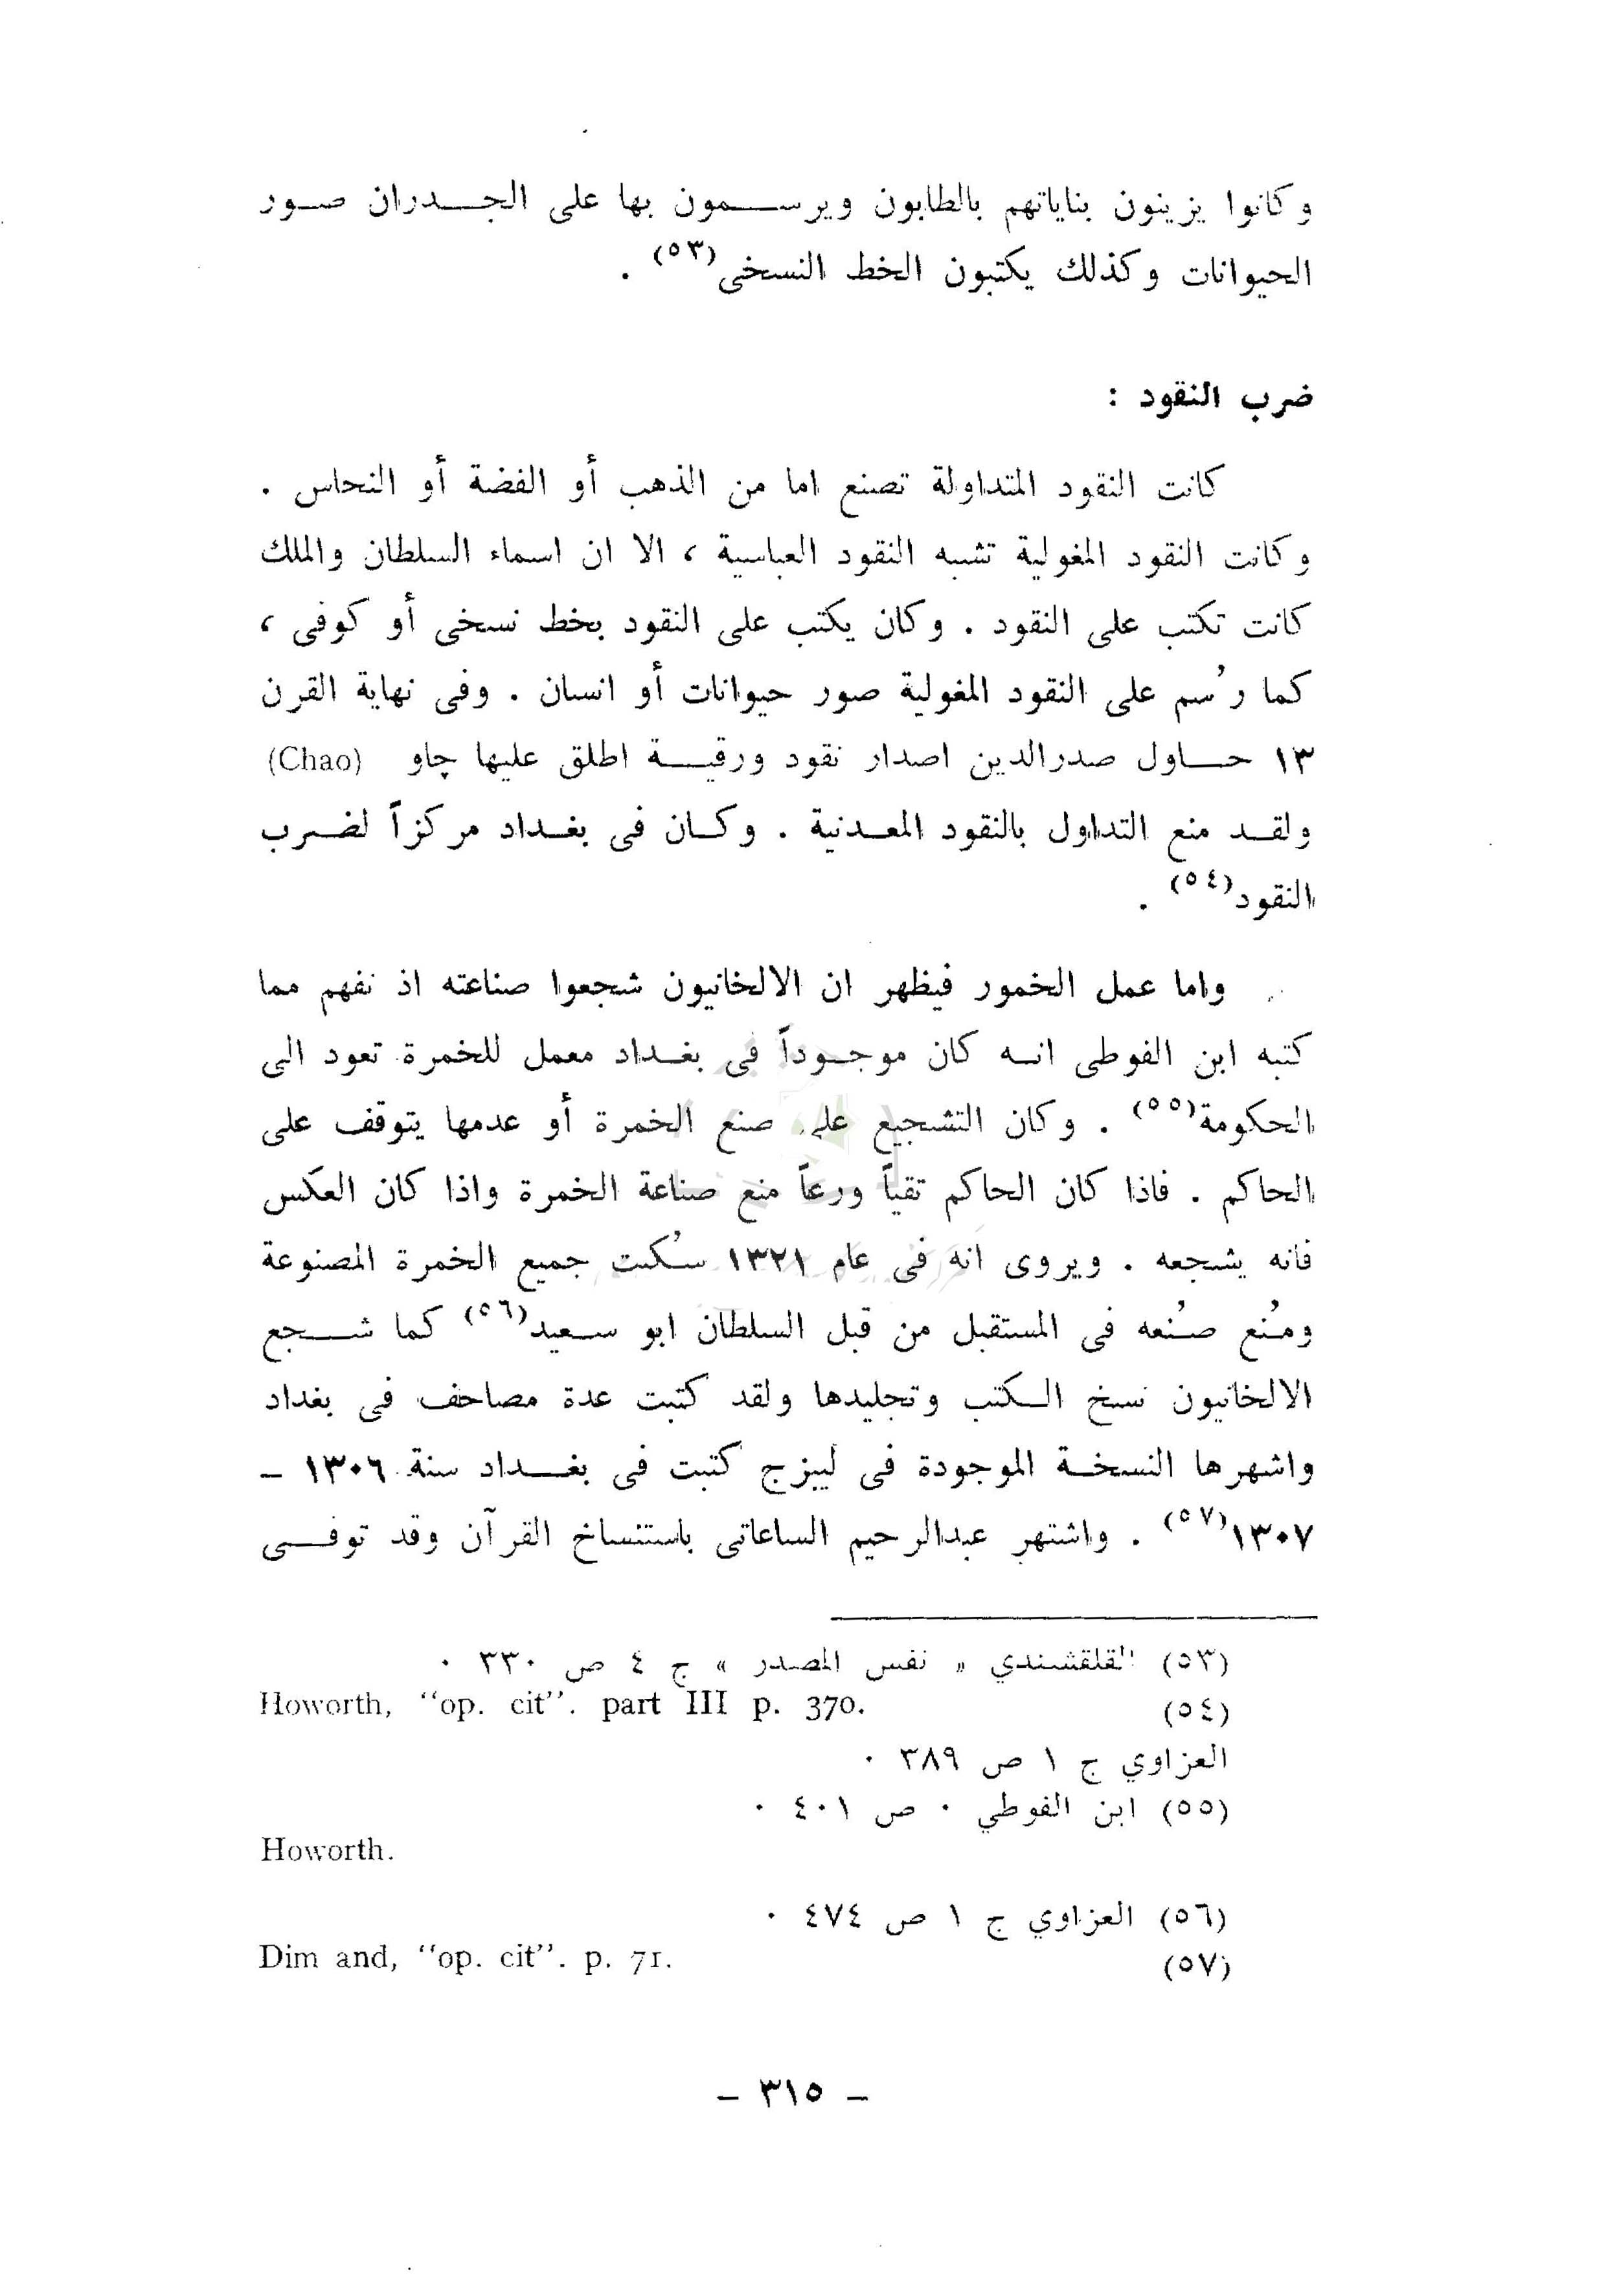 وكانوا يزينون بناياتهم بالطابون ويرسمون بها على الجدران صور
الحيوانات وكذلك يكتبون الخط النسخى(٥٣) .
ضرب النقود :
كانت النقود المتداولة تصنع اما من الذهب أو الفضة أو النحاس .
وكانت النقود المغولية تشبه النقود العباسية ، الا ان اسماء السلطان والملك
كانت تكتب على النقود . وكان يكتب على النقود بخط نسخى أو كوفى ،
كما رُسم على النقود المغولية صور حيوانات أو انسان . وفى نهاية القرن
١٣ حاول صدرالدين اصدار نقود ورقية اطلق عليها چاو (Chao)
ولقد منع التداول بالنقود المعدنية . وكان فى بغداد مركزاً لضرب
النقود(٥٤) .
واما عمل الخمور فيظهر ان الالخانيون شجعوا صناعته اذ نفهم مما
كتبه ابن الفوطى انه كان موجوداً فى بغداد معمل للخمرة تعود الى
الحكومة(٥٥) . وكان التشجيع على صنع الخمرة أو عدمها يتوقف على
الحاكم . فاذا كان الحاكم تقياً ورعاً منع صناعة الخمرة واذا كان العكس
فانه يشجعه . ويروى انه فى عام ١٣٢١ سُكبت جميع الخمرة المصنوعة
ومُنع صُنعه فى المستقبل من قبل السلطان ابو سعيد(٥٦) كما شجع
الالخانيون نسخ الكتب وتجليدها ولقد كتبت عدة مصاحف فى بغداد
واشهرها النسخة الموجودة فى ليبزج كتبت فى بغداد سنة ١٣٠٦ –
١٣٠٧(٥٧) . واشتهر عبدالرحيم الساعاتى باستنساخ القرآن وقد توفى
(٥٣) القلقشندي « نفس المصدر » ج ٤ ص ٣٣٠ .
(٥٤) Howorth, "op. cit". part III p. 370.
العزاوي ج ١ ص ٣٨٩ .
(٥٥) ابن الفوطي . ص ٤٠١ .
Howorth.
(٥٦) العزاوي ج ١ ص ٤٧٤ .
(٥٧) Dim and, "op. cit". p. 71.
– ٣١٥ –